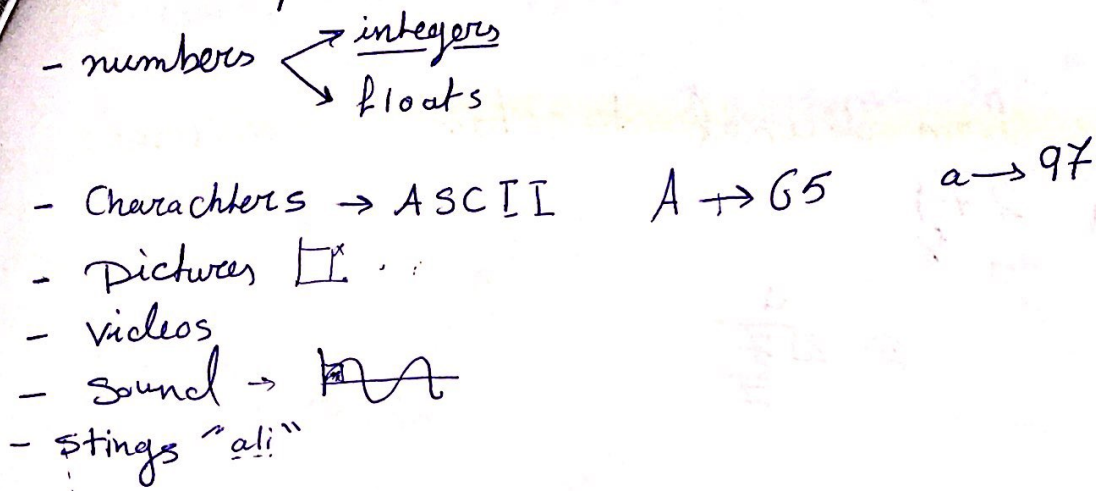 - numbers → integers
→ floats
- Charachters → ASCII A → 65 a → 97
- Pictures
- Videos
- Sound →
- stings "ali"